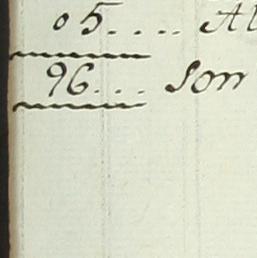 05.... Al
96... Som